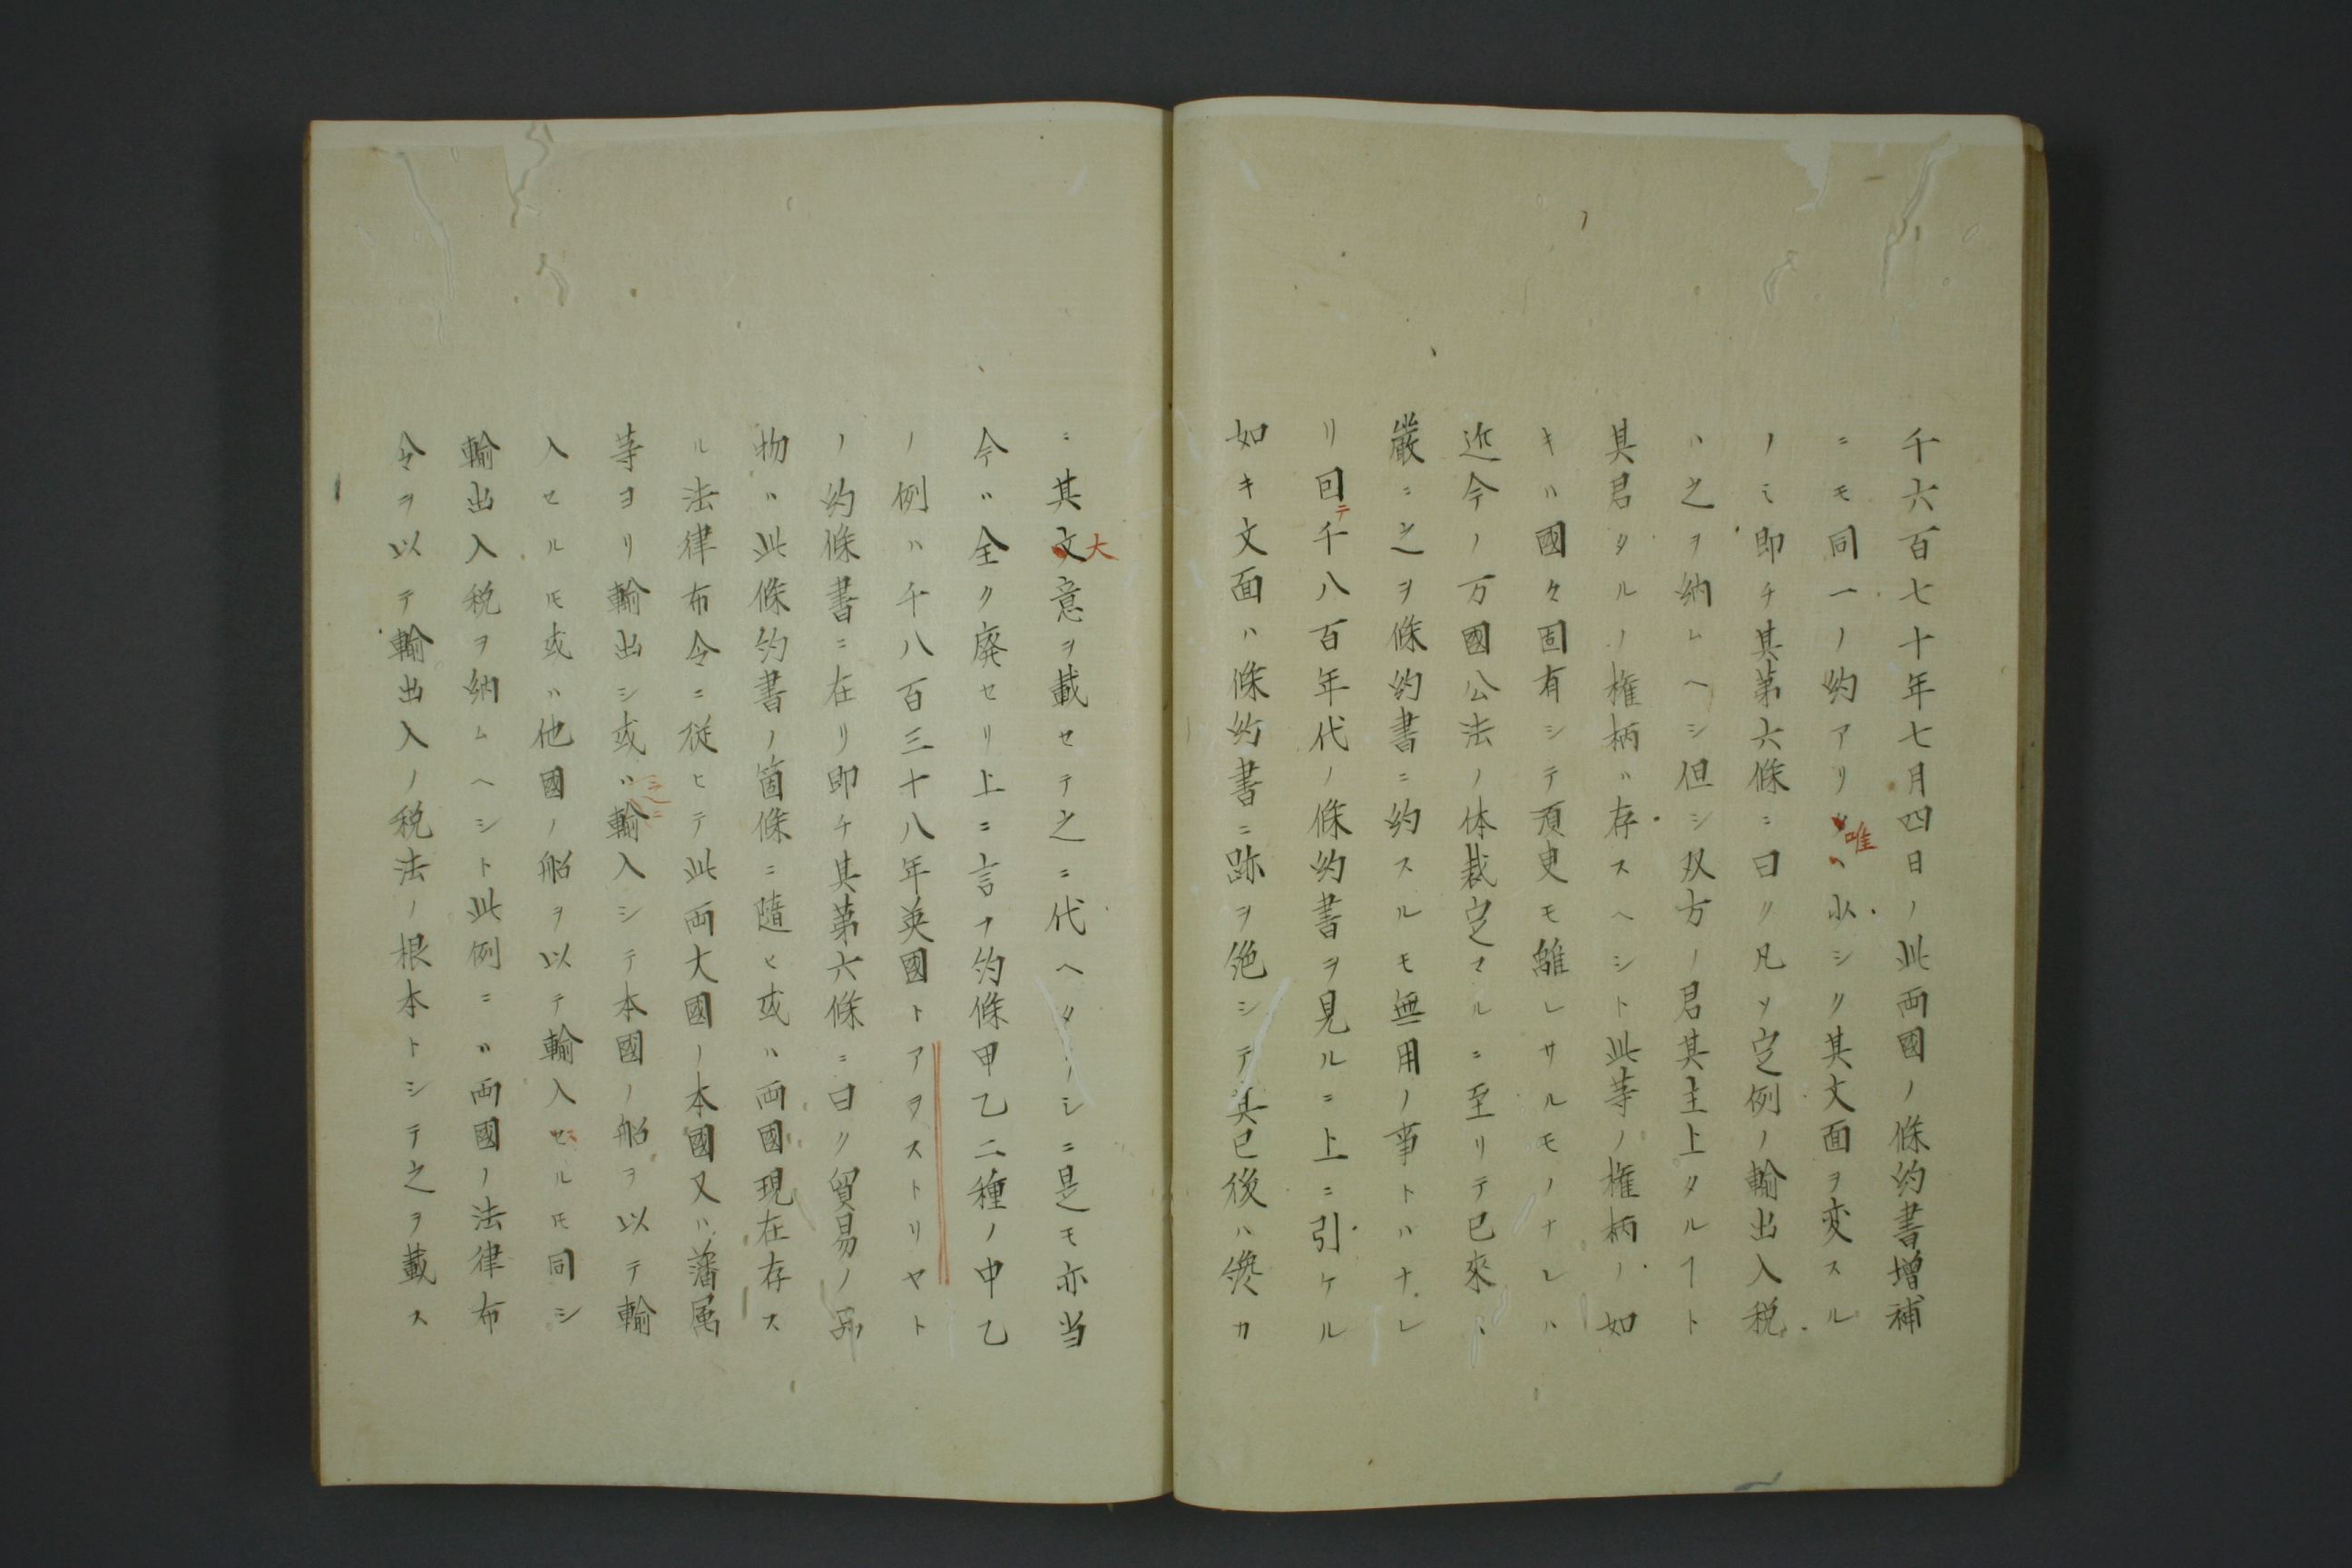 千六百七十年七月四日ノ此両國ノ條約書增補
ニモ同一ノ約アリ唯少シク其文面ヲ変スル
ノミ即チ其第六條ニ曰ク凡ソ定例ノ輸出入税
ハ之ヲ納ムヘシ但シ双方ノ君其主上タルヿト
其君タルノ権柄ハ存スヘシト此等ノ権柄ノ如
キハ國々固有シテ須臾モ離レサルモノナレハ
近今ノ万國公法ノ体裁定マルニ至リテ已來ハ
嚴ニ之ヲ條約書ニ約スルモ無用ノ事トハナレ
リ回テ千八百年代ノ條約書ヲ見ルニ上ニ引ケル
如キ文面ハ條約書ニ跡ヲ絶シテ其已後ハ纔カ
ニ其大意ヲ載セテ之ニ代ヘタノシニ是モ亦当
今ハ全ク廃セリ上ニ言ナ約條甲乙二種ノ中乙
ノ例ハ千八百三十八年英國トアヲストリヤト
ノ約條書ニ在リ即チ其第六條ニ曰ク貿易ノ品
物ハ此條約書ノ箇條ニ隨ヒ或ハ両國現在存ス
ル法律布令ニ従ヒテ此両大國ノ本國又ハ藩属
等ヨリ輸出シ或ハ之ニ輸入シテ本國ノ船ヲ以テ輸
入セルモ或ハ他國ノ船ヲ以テ輸入セルモ同シ
輸出入税ヲ納ムヘシト此例ニハ両國ノ法律布
令ヲ以テ輸出入ノ税法ノ根本トシテ之ヲ載ス